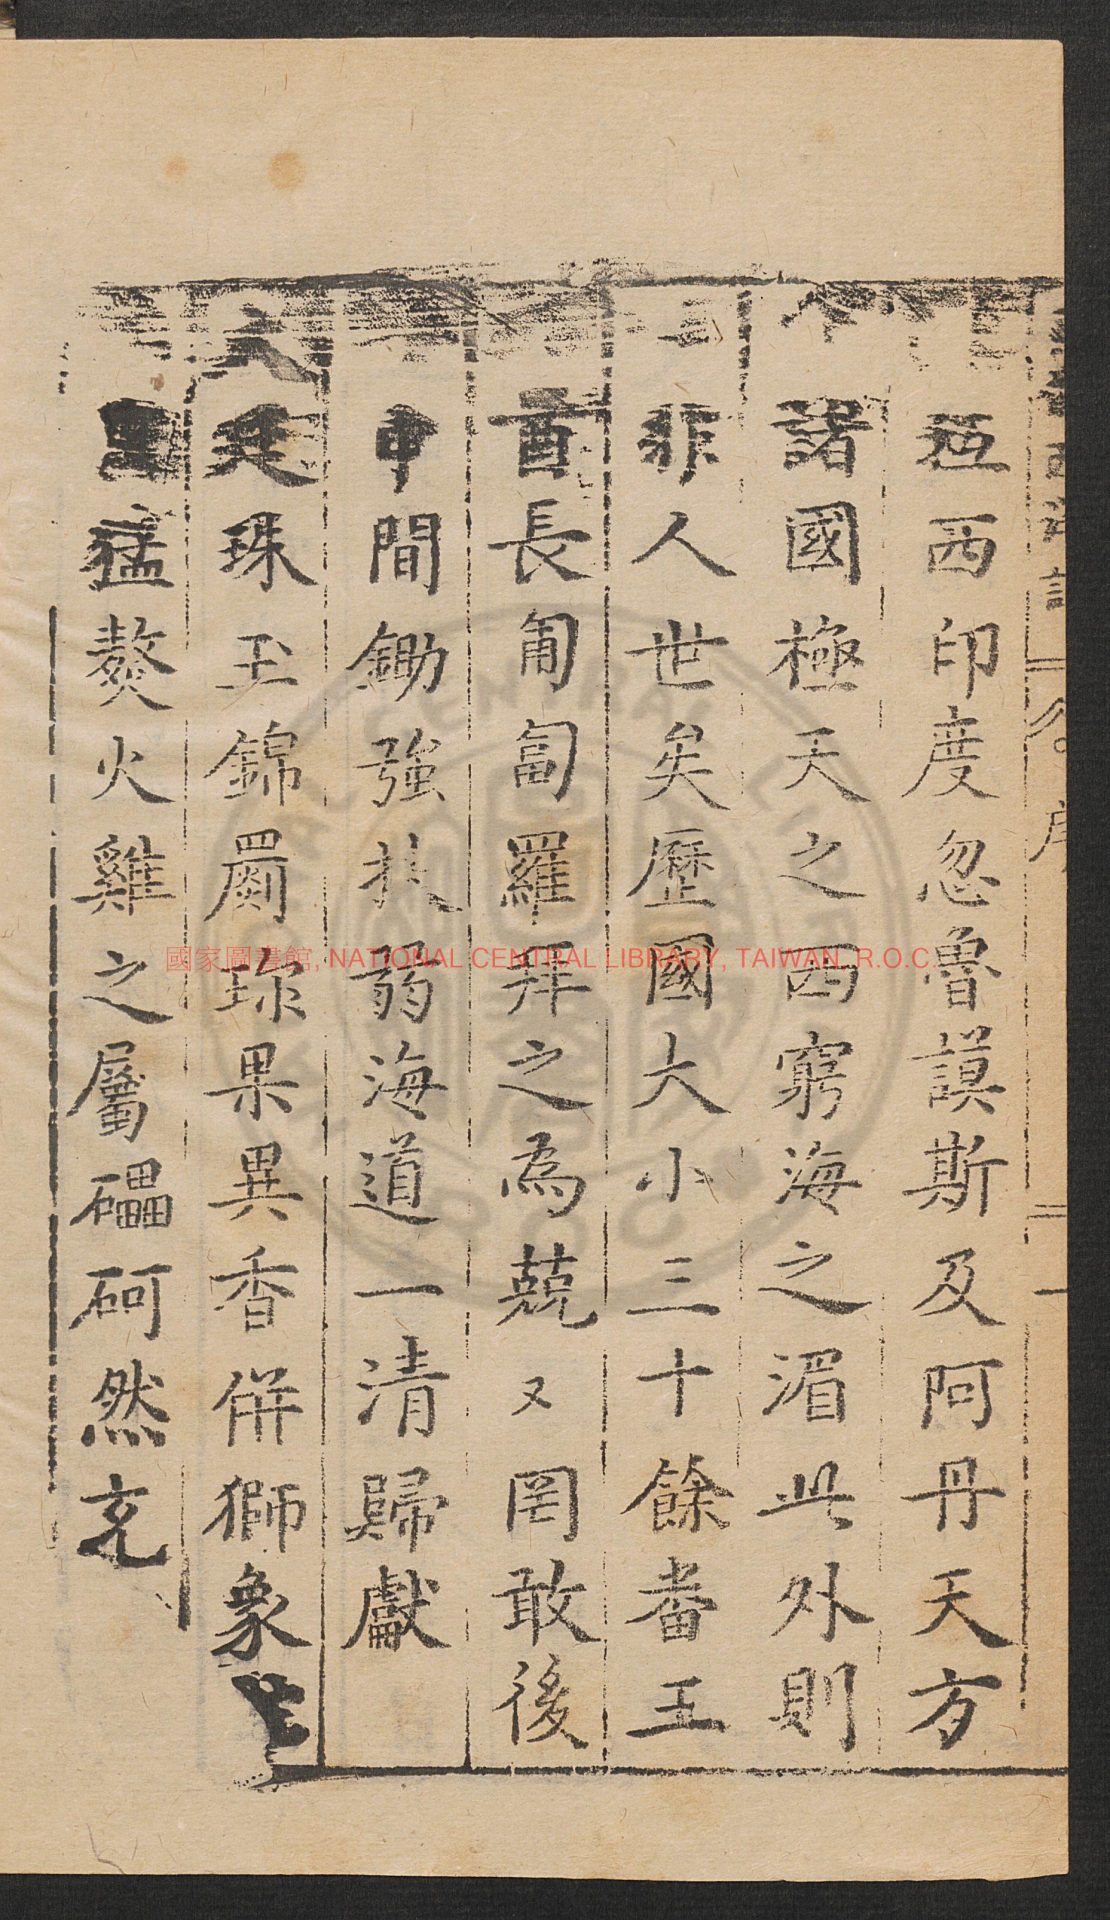 極西印度忽魯謨斯及阿丹天方
諸國極天之西窮海之湄此外則
非人世矣歷國大小三十餘畨王
酋長匍匐羅拜之為兢又罔敢後
中間鋤強扶弱海道一清歸獻
天廷珠玉錦罽珍果異香倂獅象
猛獒火雞之屬礧砢然充
國家圖書館, NATIONAL CENTRAL LIBRARY, TAIWAN, R.O.C.